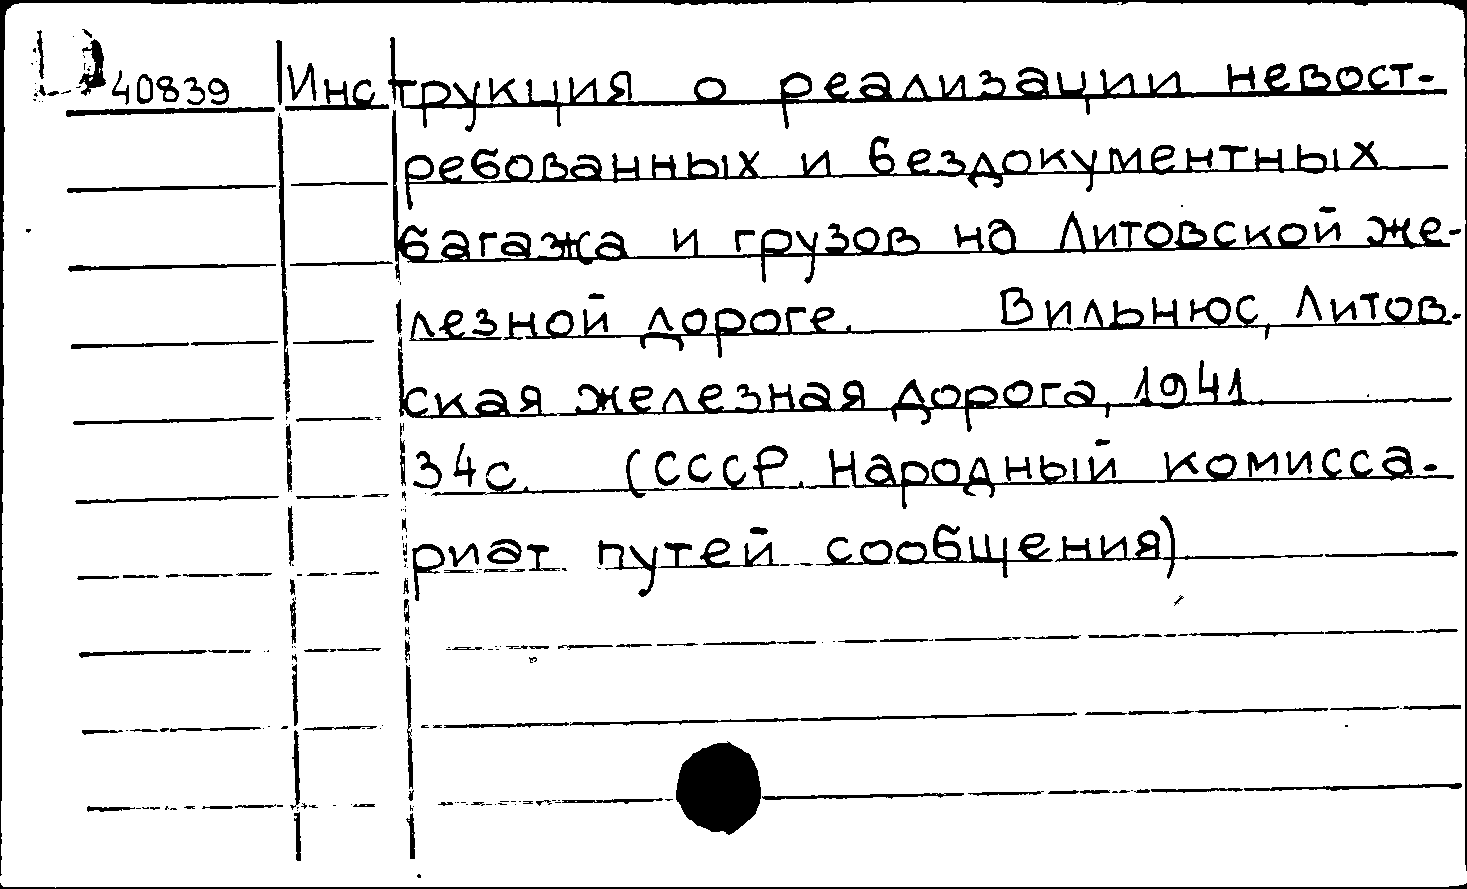 D 40839 Инструкция о реализации невост-
ребованных и бездокументных
багажа и грузов на Литовской же-
лезной дороге. Вильнюс, Литов-
ская железная дорога, 1941.
34с. (СССР. Народный комисса-
риат путей сообщения)